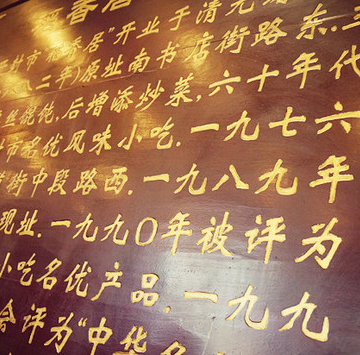 香居
封市 稻香居"开业于清光绪
八八二年)原址南书店街路东.二
丝馄饨,后增添炒菜,六十年代
市名优风味小吃.一九七六
街中段路西.一九八九年
现址.一九九〇年被评为
小吃名优产品.一九九
会评为"中华名